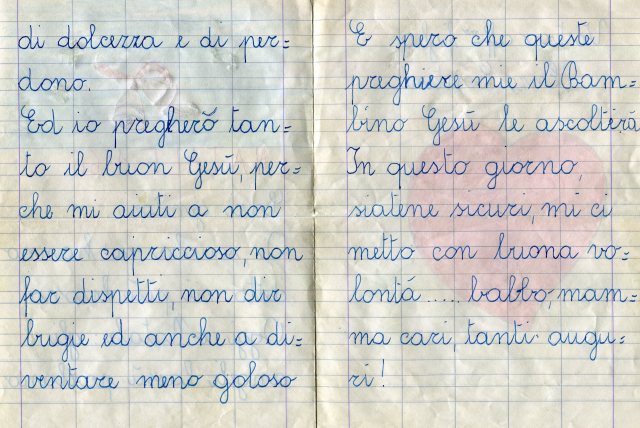 di dolcezza e di per=
dono.
Ed io pregherō tan=
to il buon Gesū, per=
che mi aiuti a non
essere capriccioso, non
far dispetti, non dir
bugie ed anche a di=
ventare meno goloso
E spero che queste
preghiere mie il Bam=
bino Gesū le ascolterā
In questo giorno,
siatene sicuri, mi ci
metto con buona vo=
lontá ..... babbo, mam=
ma cari, tanti augu=
ri!